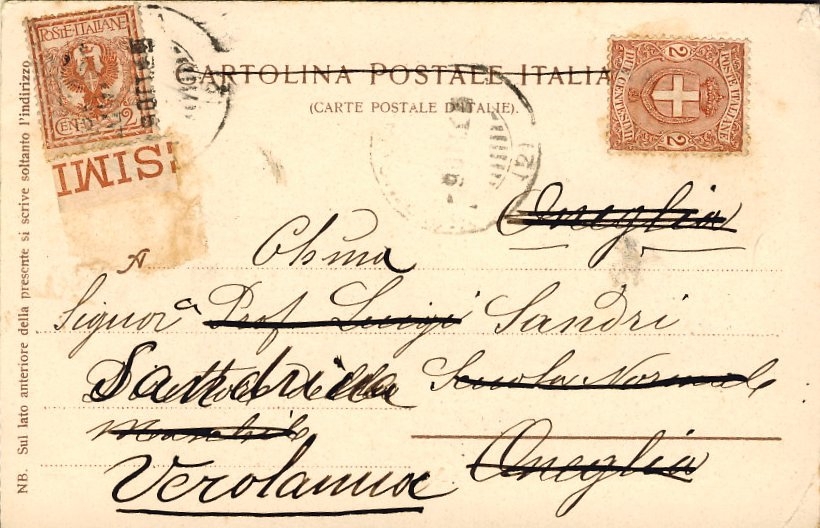 POSTE·ITALIANE
CENT. 2
SIMI
CARTOLINA POSTALE ITALIANA
(CARTE POSTALE D'ITALIE).
POSTE ITALIANE
DUE CENTESIMI
2 2
(12)
NB. Sul lato anteriore della presente si scrive soltanto l'indirizzo.
Oneglia
A Chma
Signora Prof Luigi Sandri
Sandrina Scuola Normale
Maschile
Verolanuova Oneglia